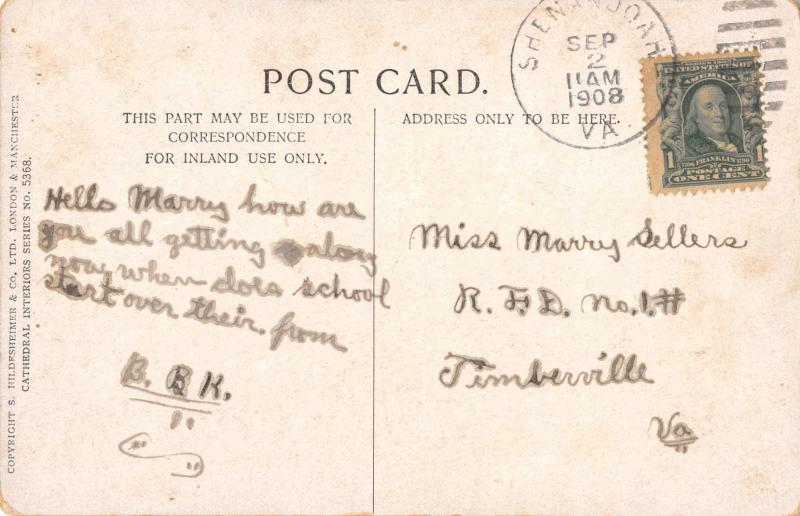 POST CARD.
THIS PART MAY BE USED FOR
CORRESPONDENCE
FOR INLAND USE ONLY.
ADDRESS ONLY TO BE HERE.
SHENANDOAH
SEP
2
11AM
1908
VA
SERIES 1902
UNITED STATES OF
AMERICA
1706 FRANKLIN 1790
1 1
POSTAGE
ONE CENT
Hello Marry how are
you all getting along
now, when does school
start over their. from
B. B K.
Miss Marry Sellers
R. F. D. No. 1. #
Timberville
Va
COPYRIGHT S. HILDESHEIMER & CO, LTD. LONDON & MANCHESTER
CATHEDRAL INTERIORS SERIES NO. 5368.